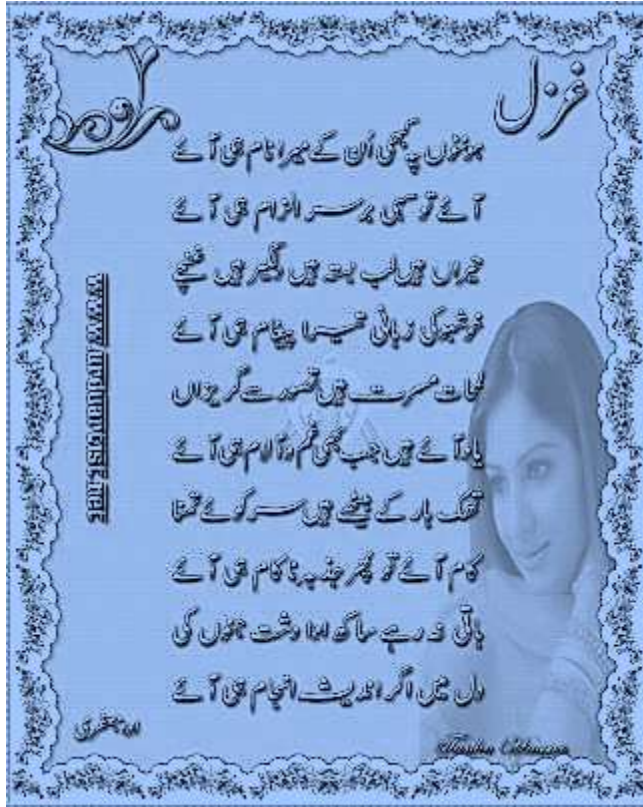 غزل
ہونٹوں پہ کبھی اُن کے میرا نام ہی آئے
آئے تو سہی بر سرِ الزام ہی آئے
حیراں ہیں لب بستہ ہیں دلگیر ہیں غنچے
خوشبو کی زبانی تیرا پیغام ہی آئے
لمحات مسرت ہیں تصور سے گریزاں
یاد آئے ہیں جب بھی غم و آلام ہی آئے
تھک ہار کے بیٹھے ہیں سر کوئے تمنا
کام آئے تو پھر جذبہ ناکام ہی آئے
باقی نہ رہے ساکھ ادا دشت جنوں کی
دل میں اگر اندیشہ انجام ہی آئے
ادا جعفری